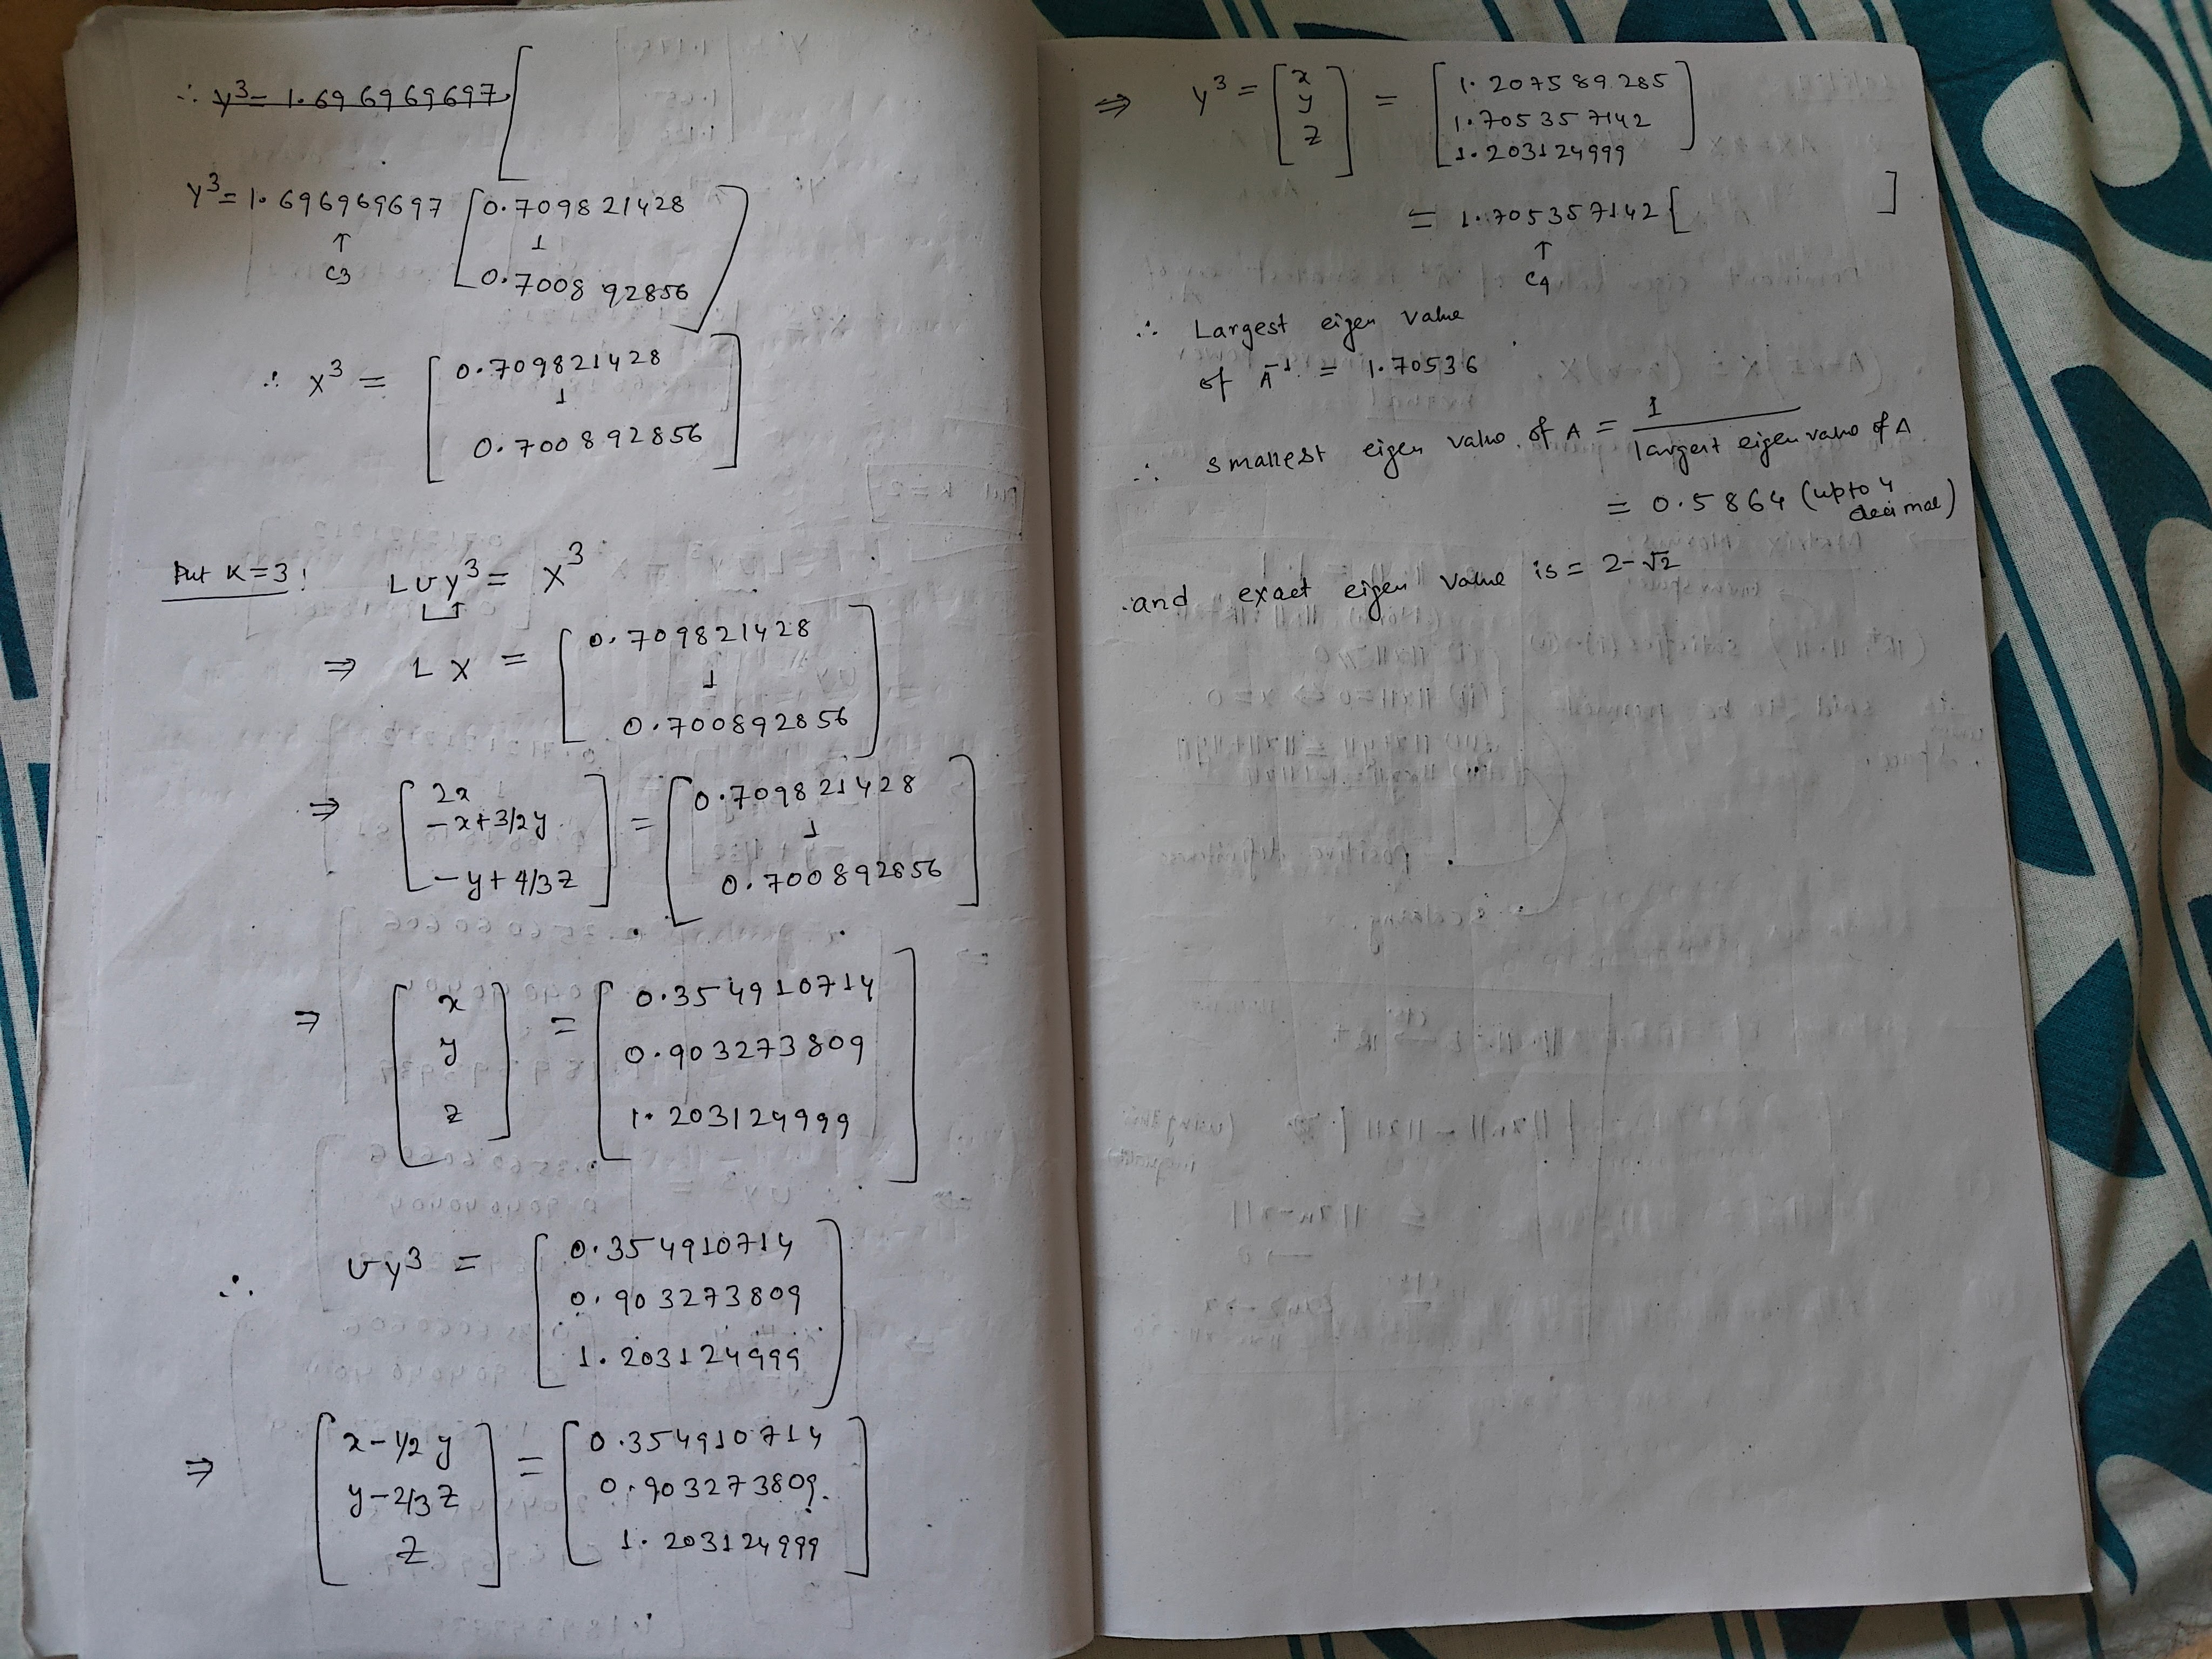 ∴ y³ = 1.696969697 [
y³ = 1.696969697 [0.709821428
↑ 1
c3 0.700892856]
∴ x³ = [0.709821428
1
0.700892856]
Put K=3! LUy³ = x³
⇒ LX = [0.709821428
1
0.700892856]
⇒ [2x = [0.709821428
-x+3/2y 1
-y+4/3z] 0.700892856]
⇒ [x = [0.354910714
y 0.903273809
z] 1.203124999]
∴ Uy³ = [0.354910714
0.903273809
1.203124999]
⇒ [x-1/2y = [0.354910714
y-2/3z 0.903273809
z] 1.203124999]
⇒ y³ = [x = [1.207589285
y 1.705357142
z] 1.203124999]
= 1.705357142 [ ]
↑
c4
∴ Largest eigen value
of A⁻¹ = 1.70536
∴ smallest eigen value of A = 1 / largest eigen value of A
= 0.5864 (upto 4 decimal)
and exact eigen value is = 2-√2